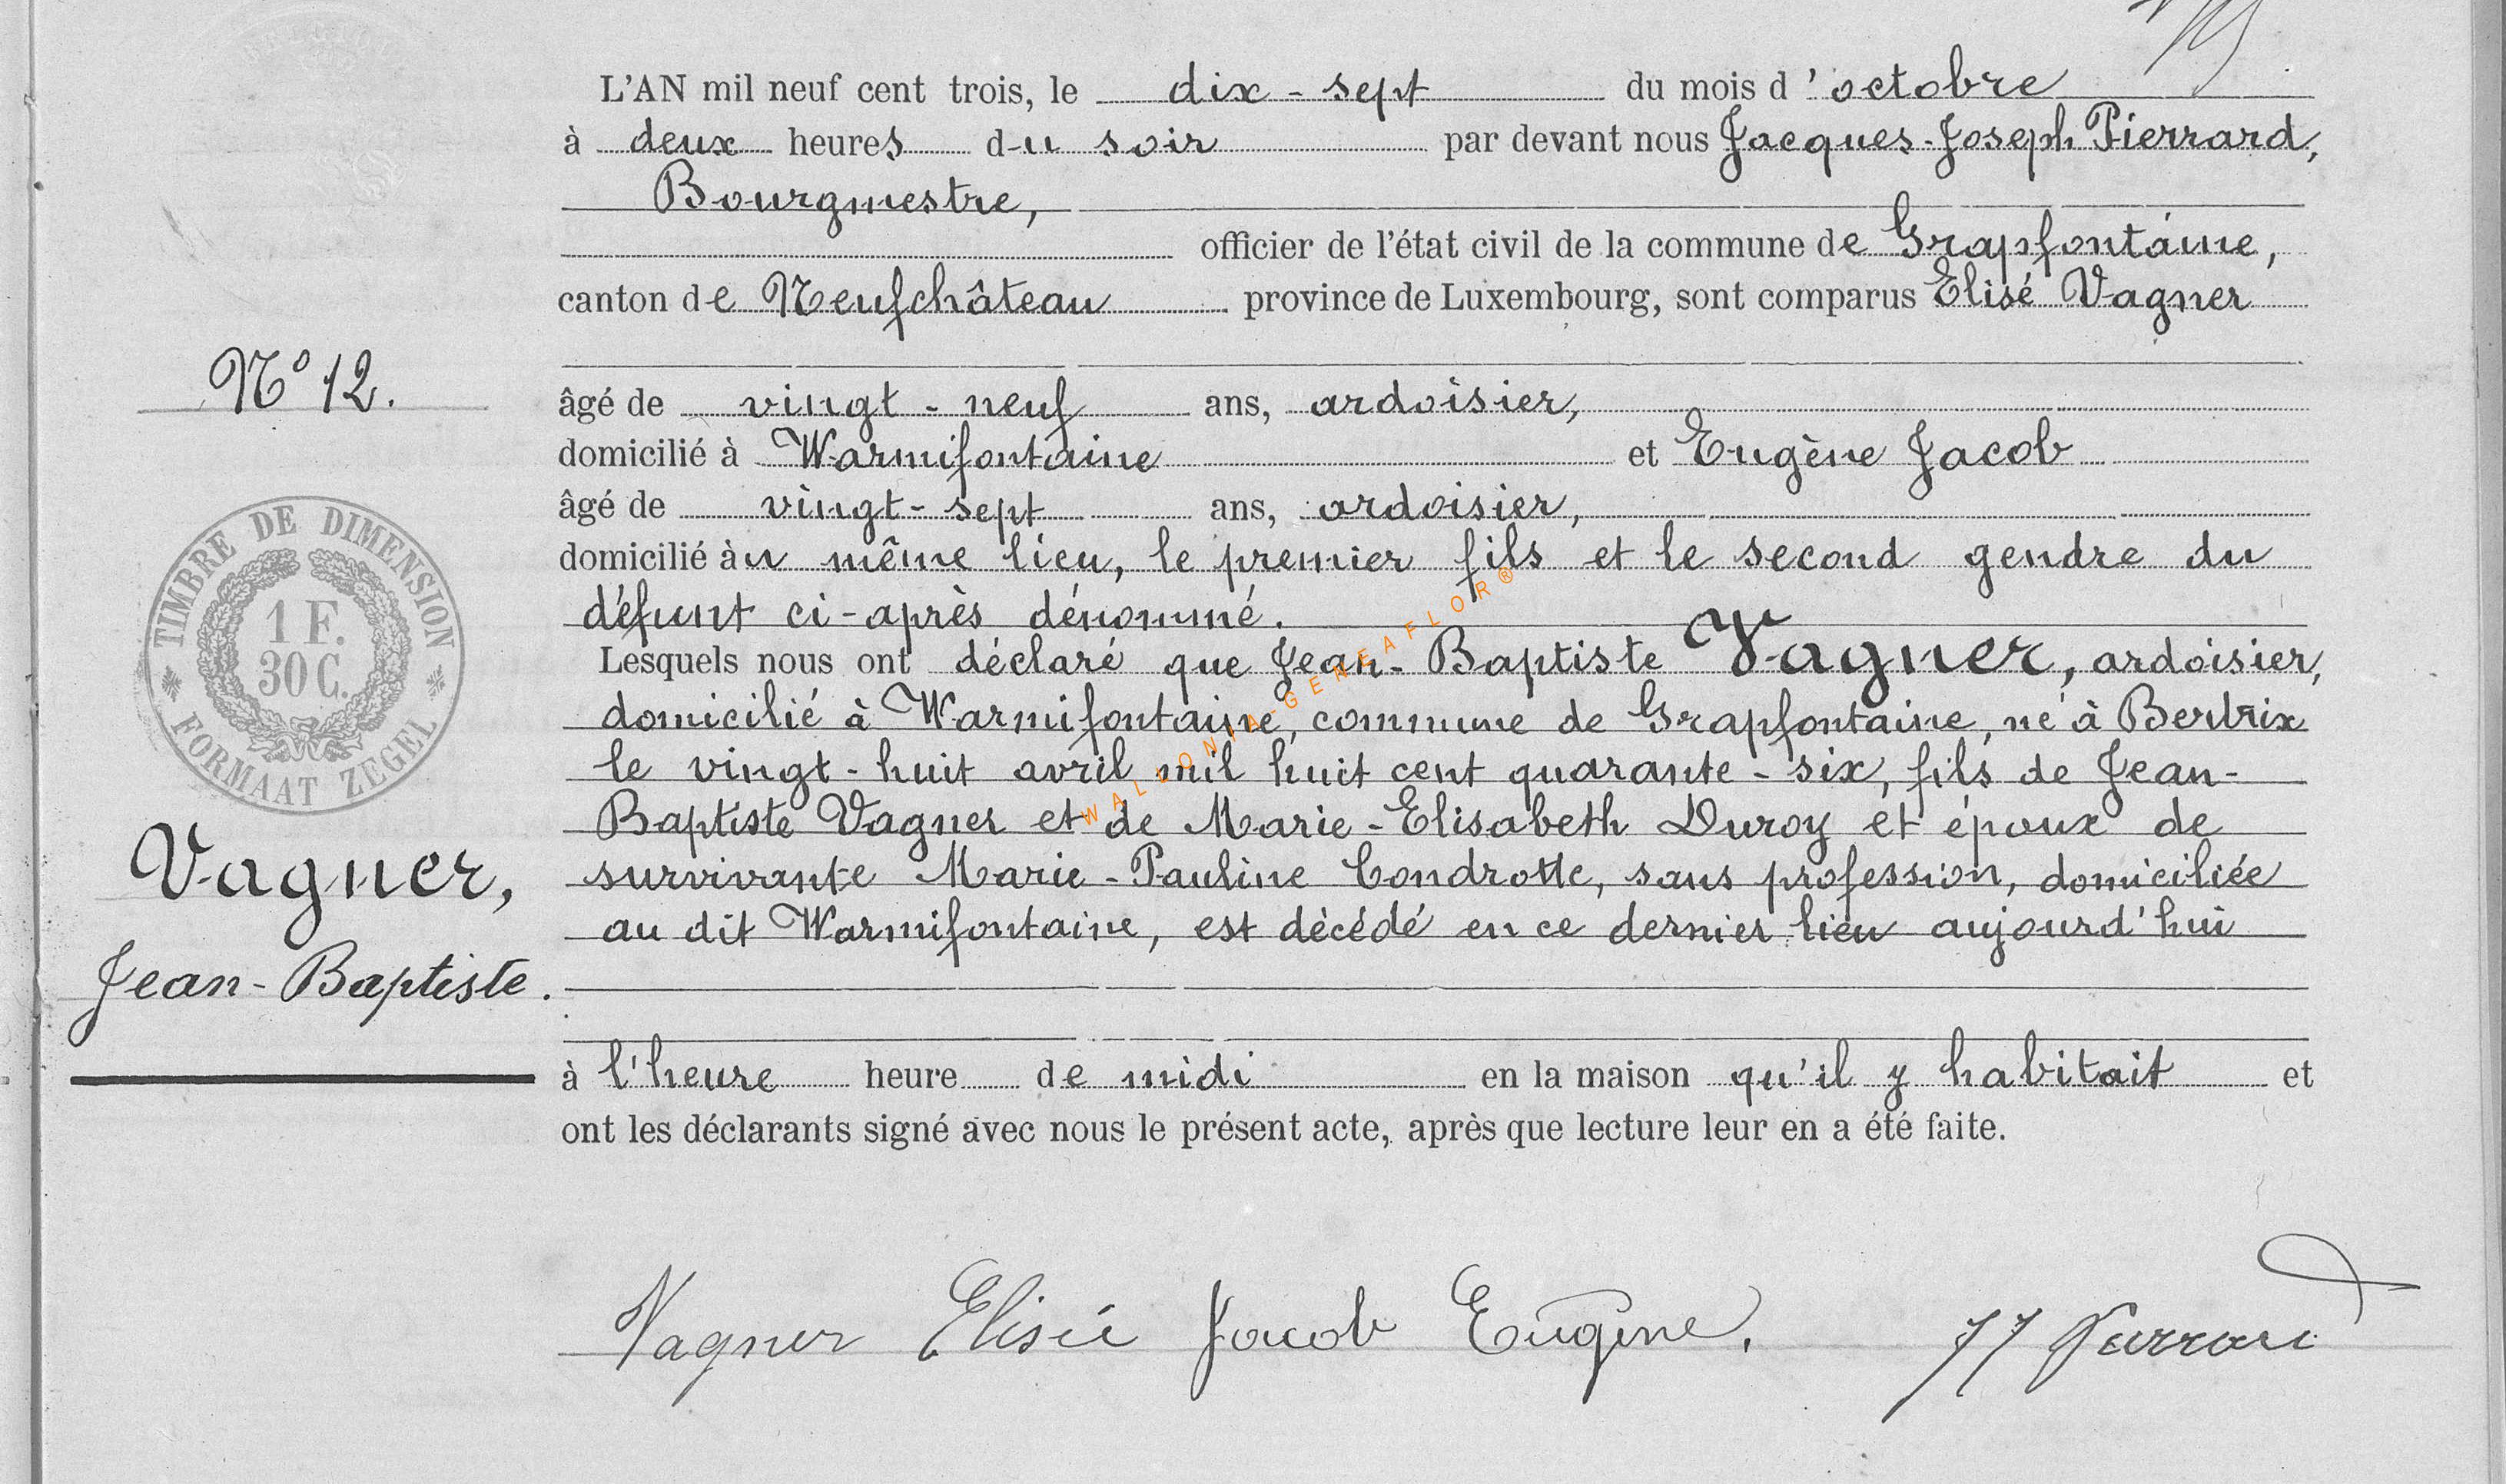 L'AN mil neuf cent trois, le dix-sept du mois d'octobre
à deux heures du soir par devant nous Jacques-Joseph Pierrard,
Bourgmestre,
officier de l'état civil de la commune de Grapfontaine,
canton de Neufchâteau province de Luxembourg, sont comparus Elisé Vagner
N° 12.
âgé de vingt-neuf ans, ardoisier,
domicilié à Warmifontaine et Eugène Jacob
âgé de vingt-sept ans, ardoisier,
domicilié àu même lieu, le premier fils et le second gendre du
défunt ci-après dénommé.
TIMBRE DE DIMENSION
1 F.
30 C.
FORMAAT ZEGEL
Lesquels nous ont déclaré que Jean-Baptiste Vagner, ardoisier,
domicilié à Warmifontaine, commune de Grapfontaine, né à Bertrix
le vingt-huit avril mil huit cent quarante-six, fils de Jean-
Baptiste Vagner et de Marie-Elisabeth Duroy et époux de
survivante Marie-Pauline Condrotte, sans profession, domiciliée
au dit Warmifontaine, est décédé en ce dernier lieu aujourd'hui
Vagner,
Jean-Baptiste.
à l'heure heure de midi en la maison qu'il y habitait et
ont les déclarants signé avec nous le présent acte, après que lecture leur en a été faite.
WALLONIA-GENEAFLOR®
Vagner Elisée Jacob Eugène. JJ Pierrard